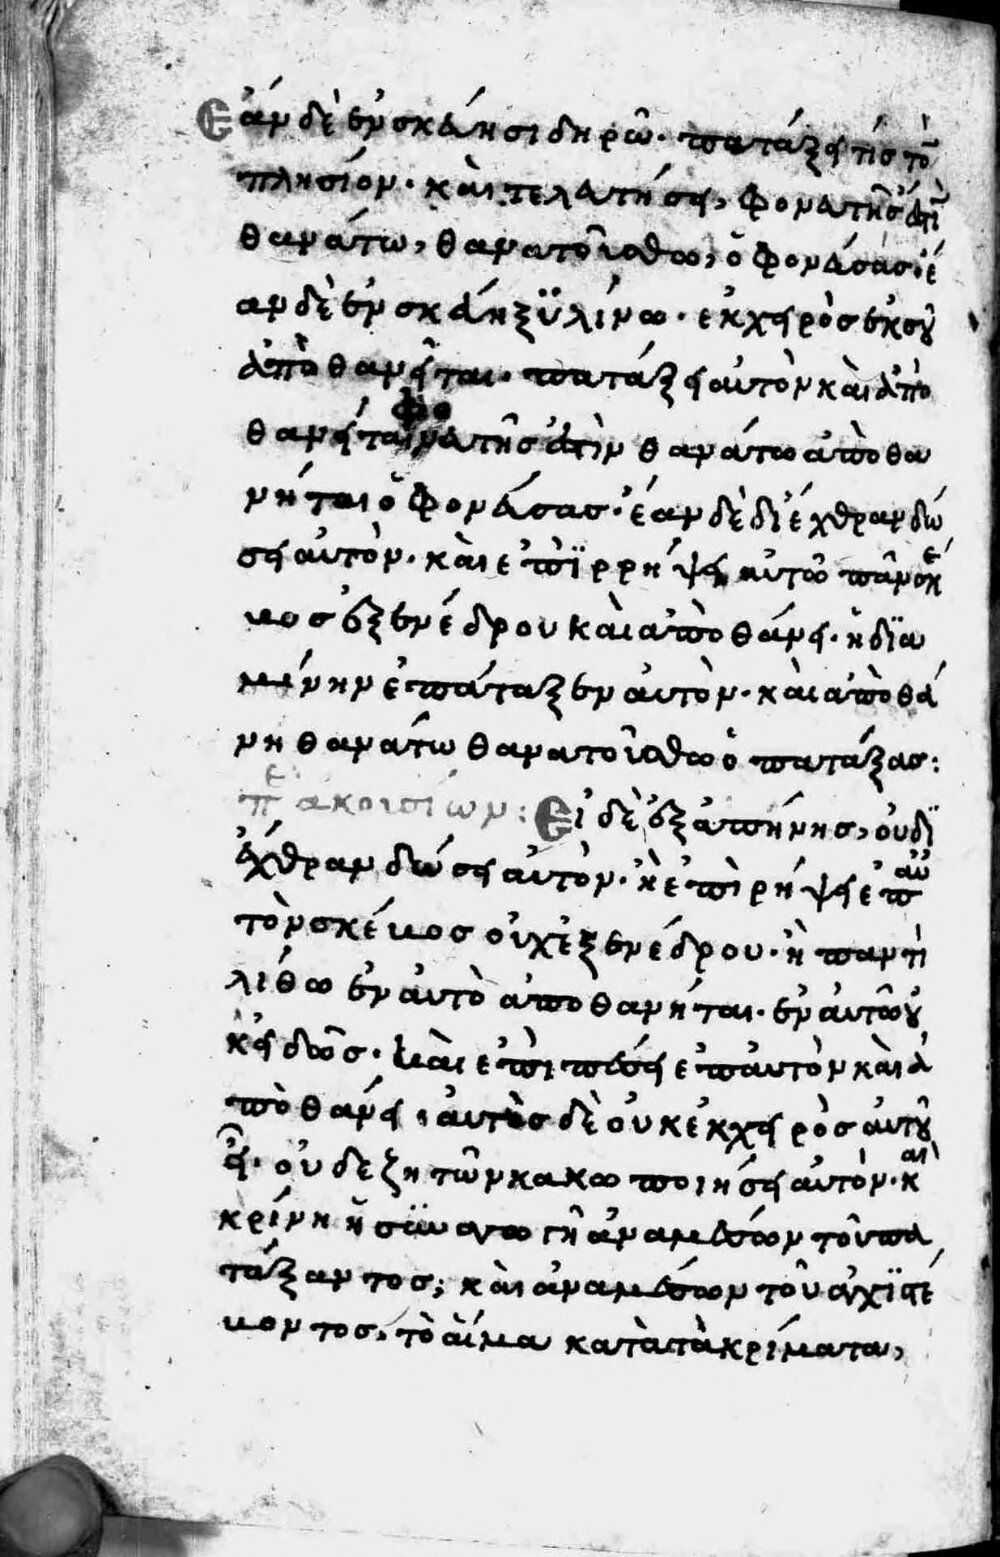 Εὰν δὲ ἐν σκεύη σιδηρῶ· πατάξει τίς τὸν
πλησίον· καὶ τελευτήσει, φονευτής ἐστὶ
θανάτω, θανατοῦσθω, ὁ φονεύσας· ἐ
ὰν δὲ ἐν σκεύη ξϋλίνω· ἐκ χειρὸς ἐκ οὗ
ἀποθανεῖται· πατάξει αὐτὸν καὶ ἀπο
θανείται φονευτής ἐστὶν θανάτω ἀποθα
νήται ὁ φονεύσας· ἐὰν δὲ δι ἔχθραν δώ
σει αὐτὸν· καὶ ἐπϊρρήψει αὐτῶ πᾶν σκεῦ
κος ἐξ ἐνέδρου καὶ ἀποθάνει· ἢ δϊα
μήνην ἐπάταξεν αὐτὸν· καὶ ἀποθά
νη θανάτω θανατοῦσθω ὁ πατάξας:
πε ακουσίων: Εἰ δὲ ἐξάπηνης, οὐ δϊ
ἔχθραν δώσει αὐτὸν· ἢ ἐπιρήψει ἐπ αὐ
τὸν σκέυος οὐχ ἐξ ἐνέδρου· ἢ παντὶ
λίθω ἐν αὐτὸ ἀποθανήται· ἐν αὐτῶ οὐ
κ εἰδὼς· καὶ ἐπιπέσει ἐπ αὐτὸν καὶ ἀ
ποθάνει, αὐτὸς δὲ οὐκ ἐκχειρὸς αὐτοῦ
εἶ· οὐδε ζητῶν κακωποιήσει αὐτὸν· καὶ
κρίνη ἡ σϋναγωγὴ ἀναμέσων τοῦ πα
τάξαντος; καὶ ἀναμέσων τοῦ ἀγχϊστέ
υοντος, τὸ αἷμα κατὰ τὰ κρίματα,